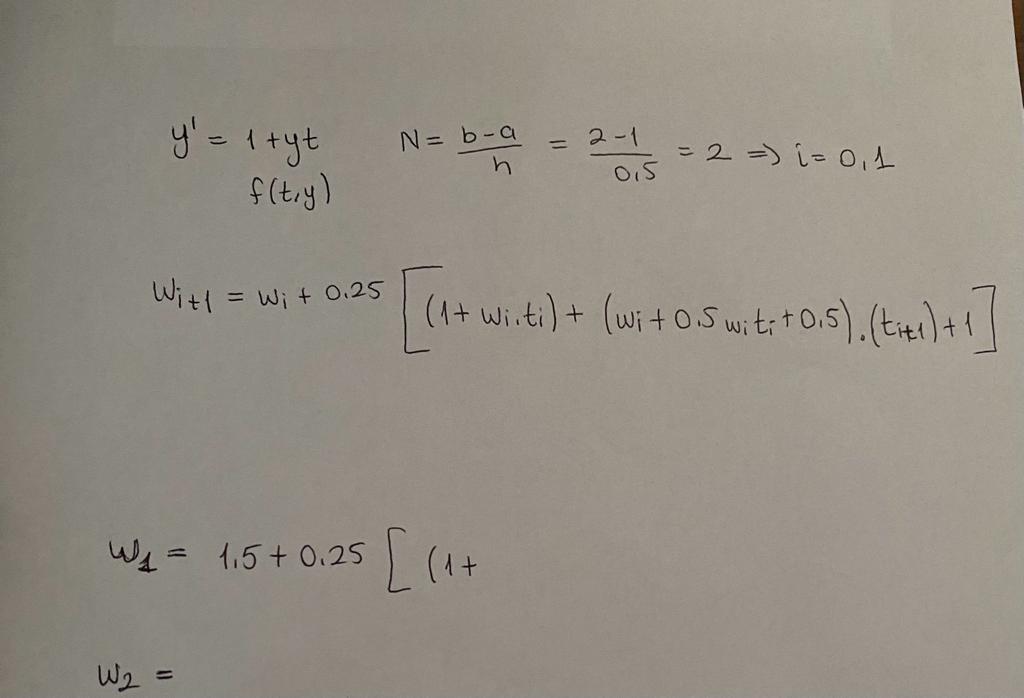 y' = 1 + yt N = b-a / h = 2-1 / 0,5 = 2 => i = 0,1
f(t,y)
Wi+1 = Wi + 0.25 [ (1 + Wi.ti) + (Wi + 0.5 Witi + 0.5).(ti+1) + 1 ]
W1 = 1.5 + 0.25 [ (1+
W2 =